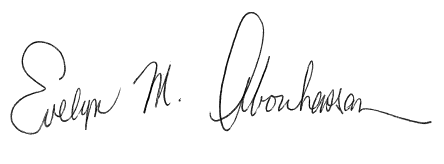 Evelyn M. Abouhassan